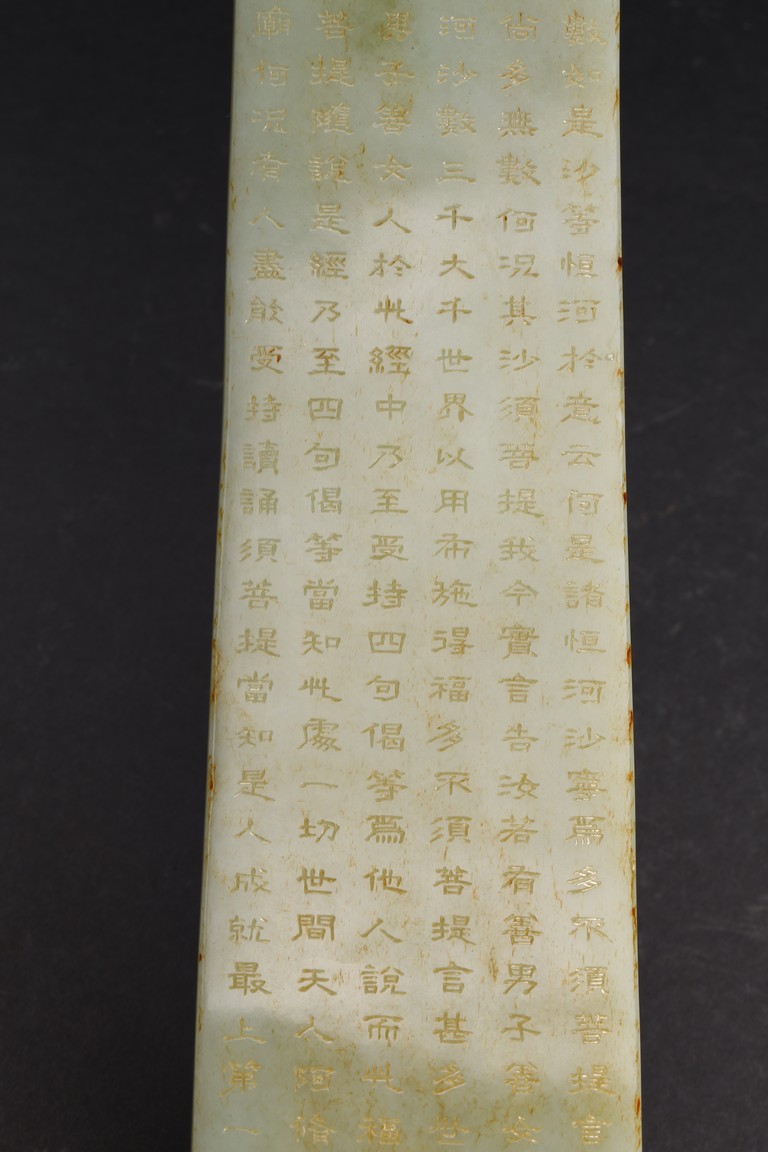 數如是沙等恒河於意云何是諸恒河沙寧爲多不須菩提言
尚多無數何況其沙須菩提我今實言告汝若有善男子善女
河沙數三千大千世界以用布施得福多不須菩提言甚多世
男子善女人於此經中乃至受持四句偈等爲他人說而此福
菩提隨說是經乃至四句偈等當知此處一切世間天人阿脩
廟何況有人盡能受持讀誦須菩提當知是人成就最上第一